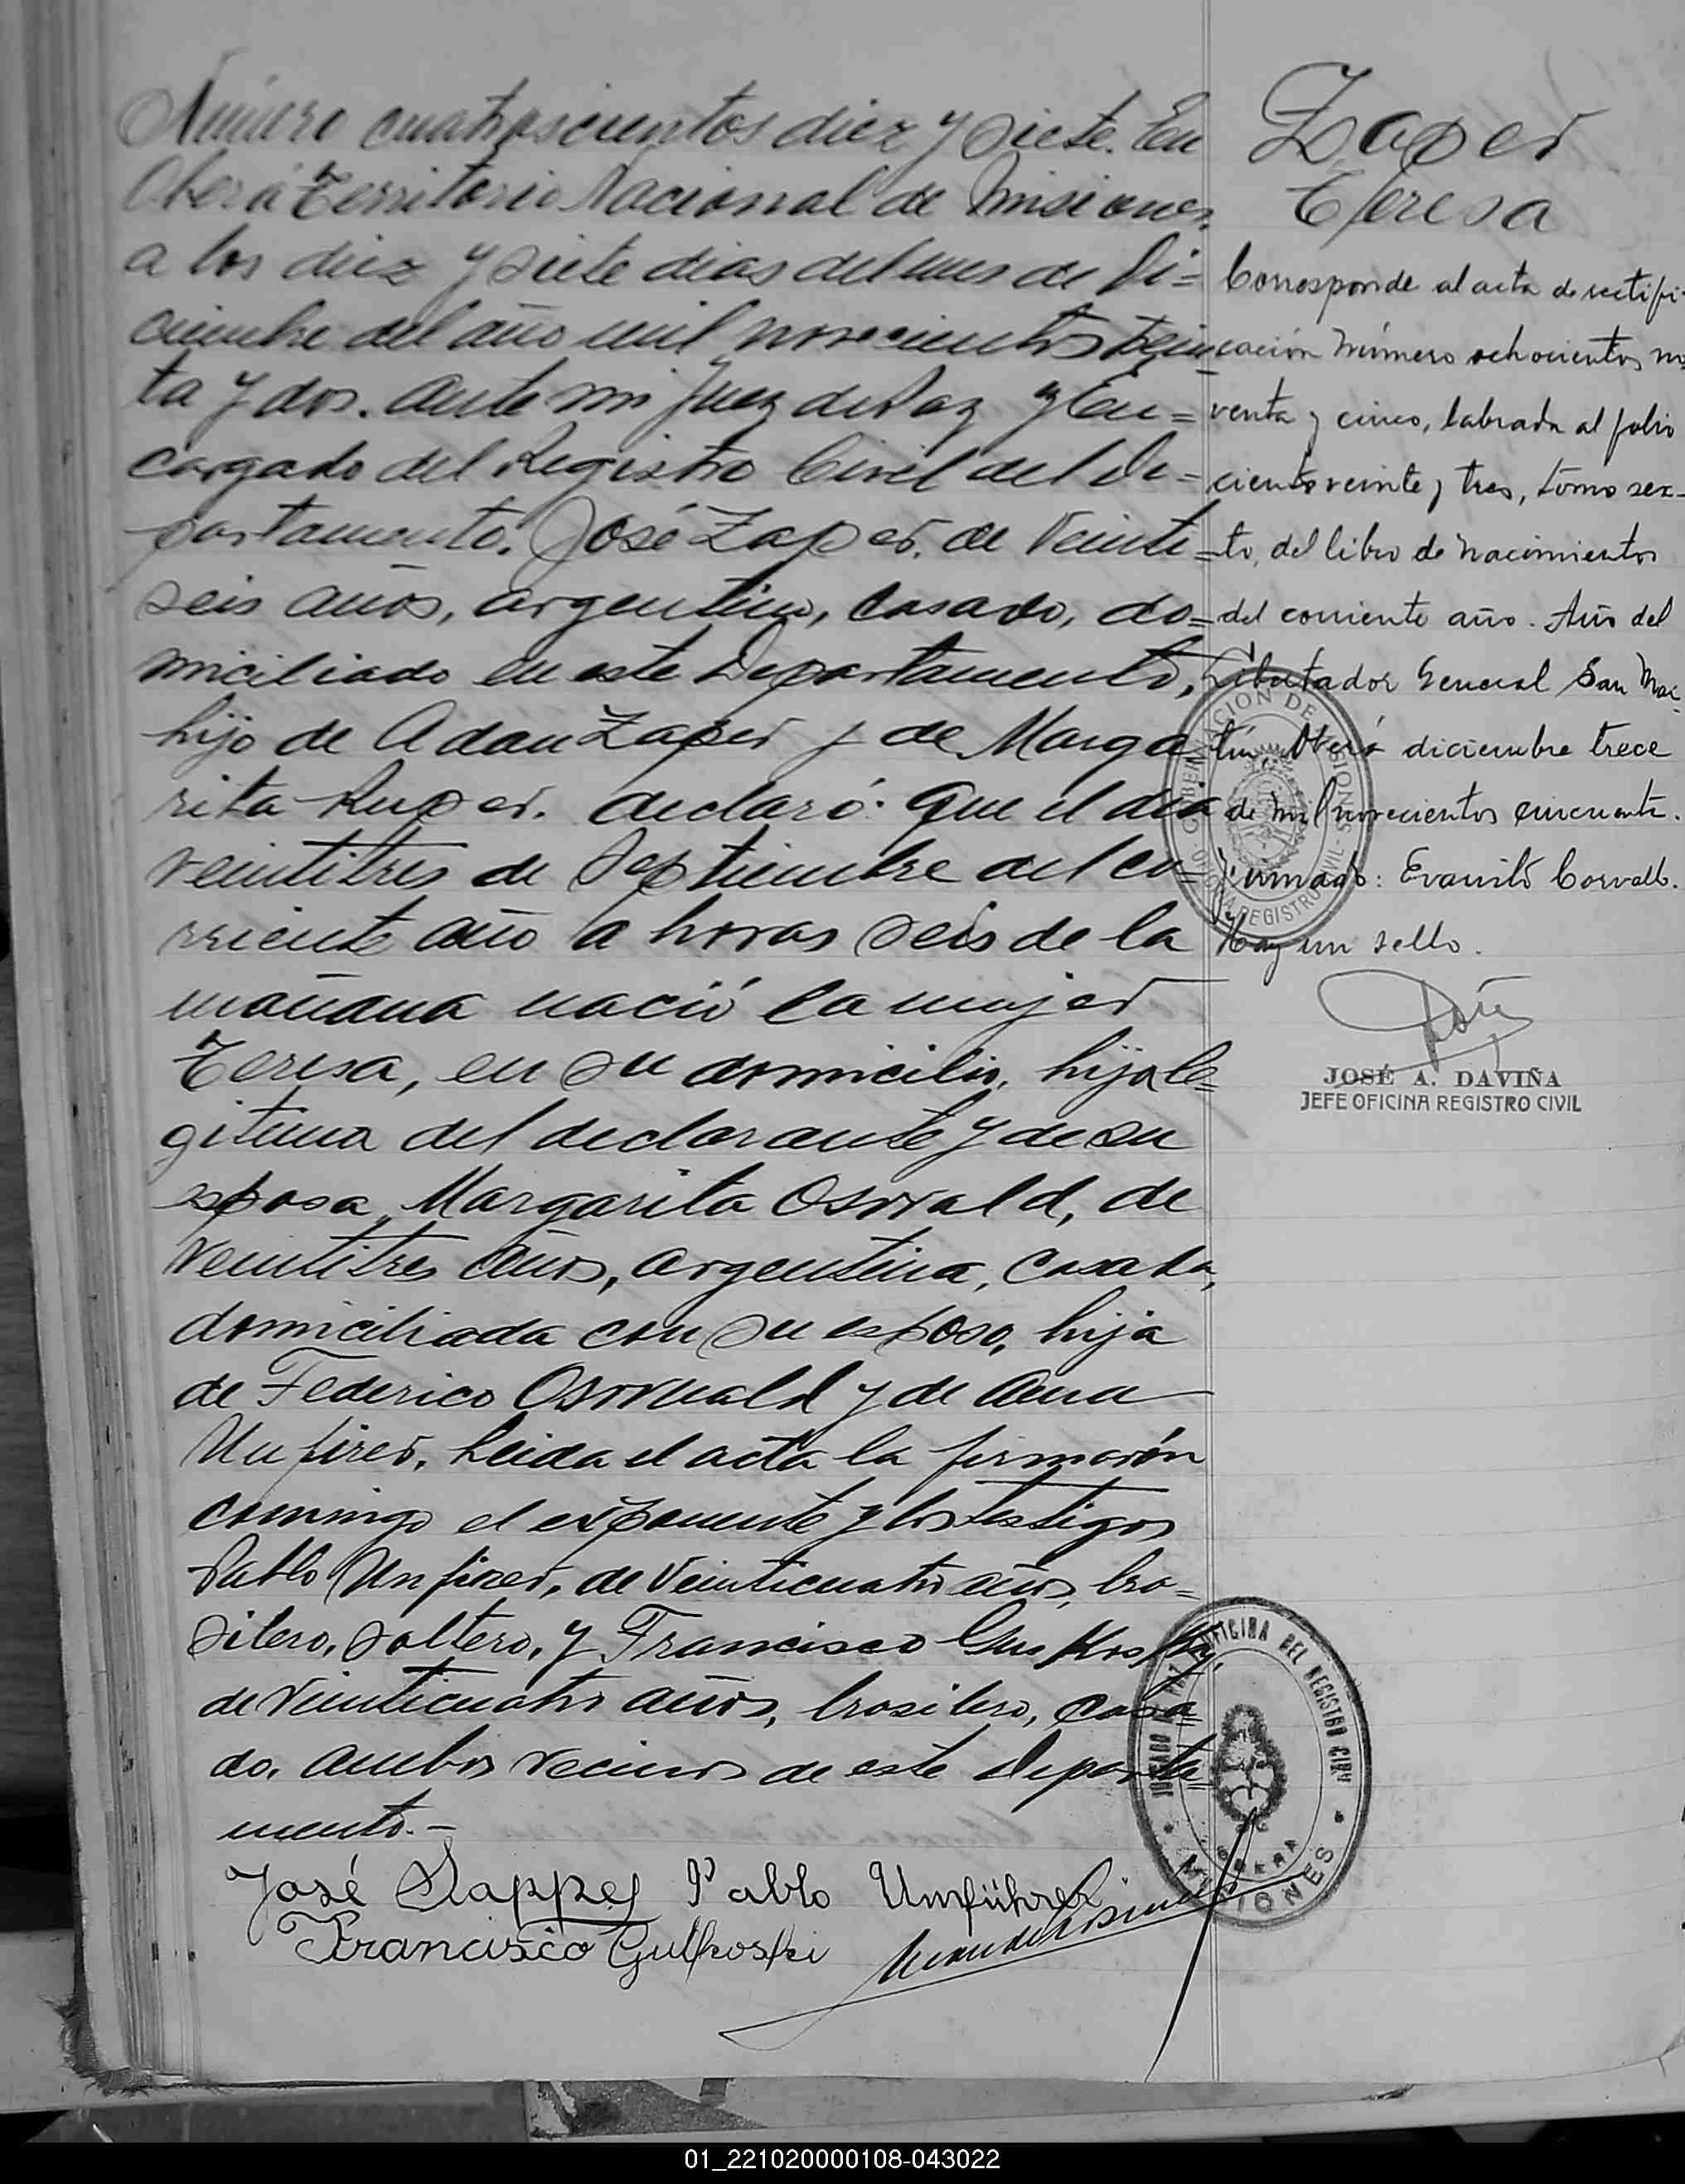 Número cuatroscientos diez y siete. En
Oberá Territorio Nacional de Misiones,
a los diez y siete dias del mes de Di=
ciembre del año mil novecientos trein
ta y dos. Ante mi Juez de Paz y En=
cargado del Registro Civil del De=
partamento. José Zaper, de veinti=
seis años, argentino, casado, do=
miciliado en este Departamento,
hijo de Adan Zaper y de Marga
rita Ruper. declaró: Que el dia
veintitres de Septiembre del co=
rriente año a horas seis de la
mañana nació la mujer
Teresa, en su domicilio, hija le=
gitima del declarante y de su
esposa, Margarita Oswald, de
veintitres años, argentina, casada,
domiciliada con su esposo, hija
de Federico Oswuald y de Ana
Unfirer. Leida el acta la firmarón
comnigo el exponente y los testigos
Pablo Unfirer, de veinticuatro años, bra=
silero, soltero, y Francisco
de veinticuatro años, brasilero, casa=
do. Ambos vecinos de este Departa=
mento.-
José Pablo Umführer
Francisco Gulkoski
Zaper
Teresa
Corresponde al acta de rectifi-
cación número ochocientos no
venta y cinco, labrada al folio
ciento veinte y tres, tomo sex-
to, del libro de nacimientos
del corriente año. Año del
Libertador General San Mar
tín, Oberá diciembre trece
de mil novecientos cincuenta.
Firmado: Evaristo Corvall.
Hay un sello.
JOSÉ A. DAVIÑA
JEFE OFICINA REGISTRO CIVIL
GOBERNACION DE MISIONES
OFICINA REGISTRO CIVIL
JUZGADO DE PAZ OFICINA DEL REGISTRO CIVIL
OBERA
MISIONES
01_221020000108-043022